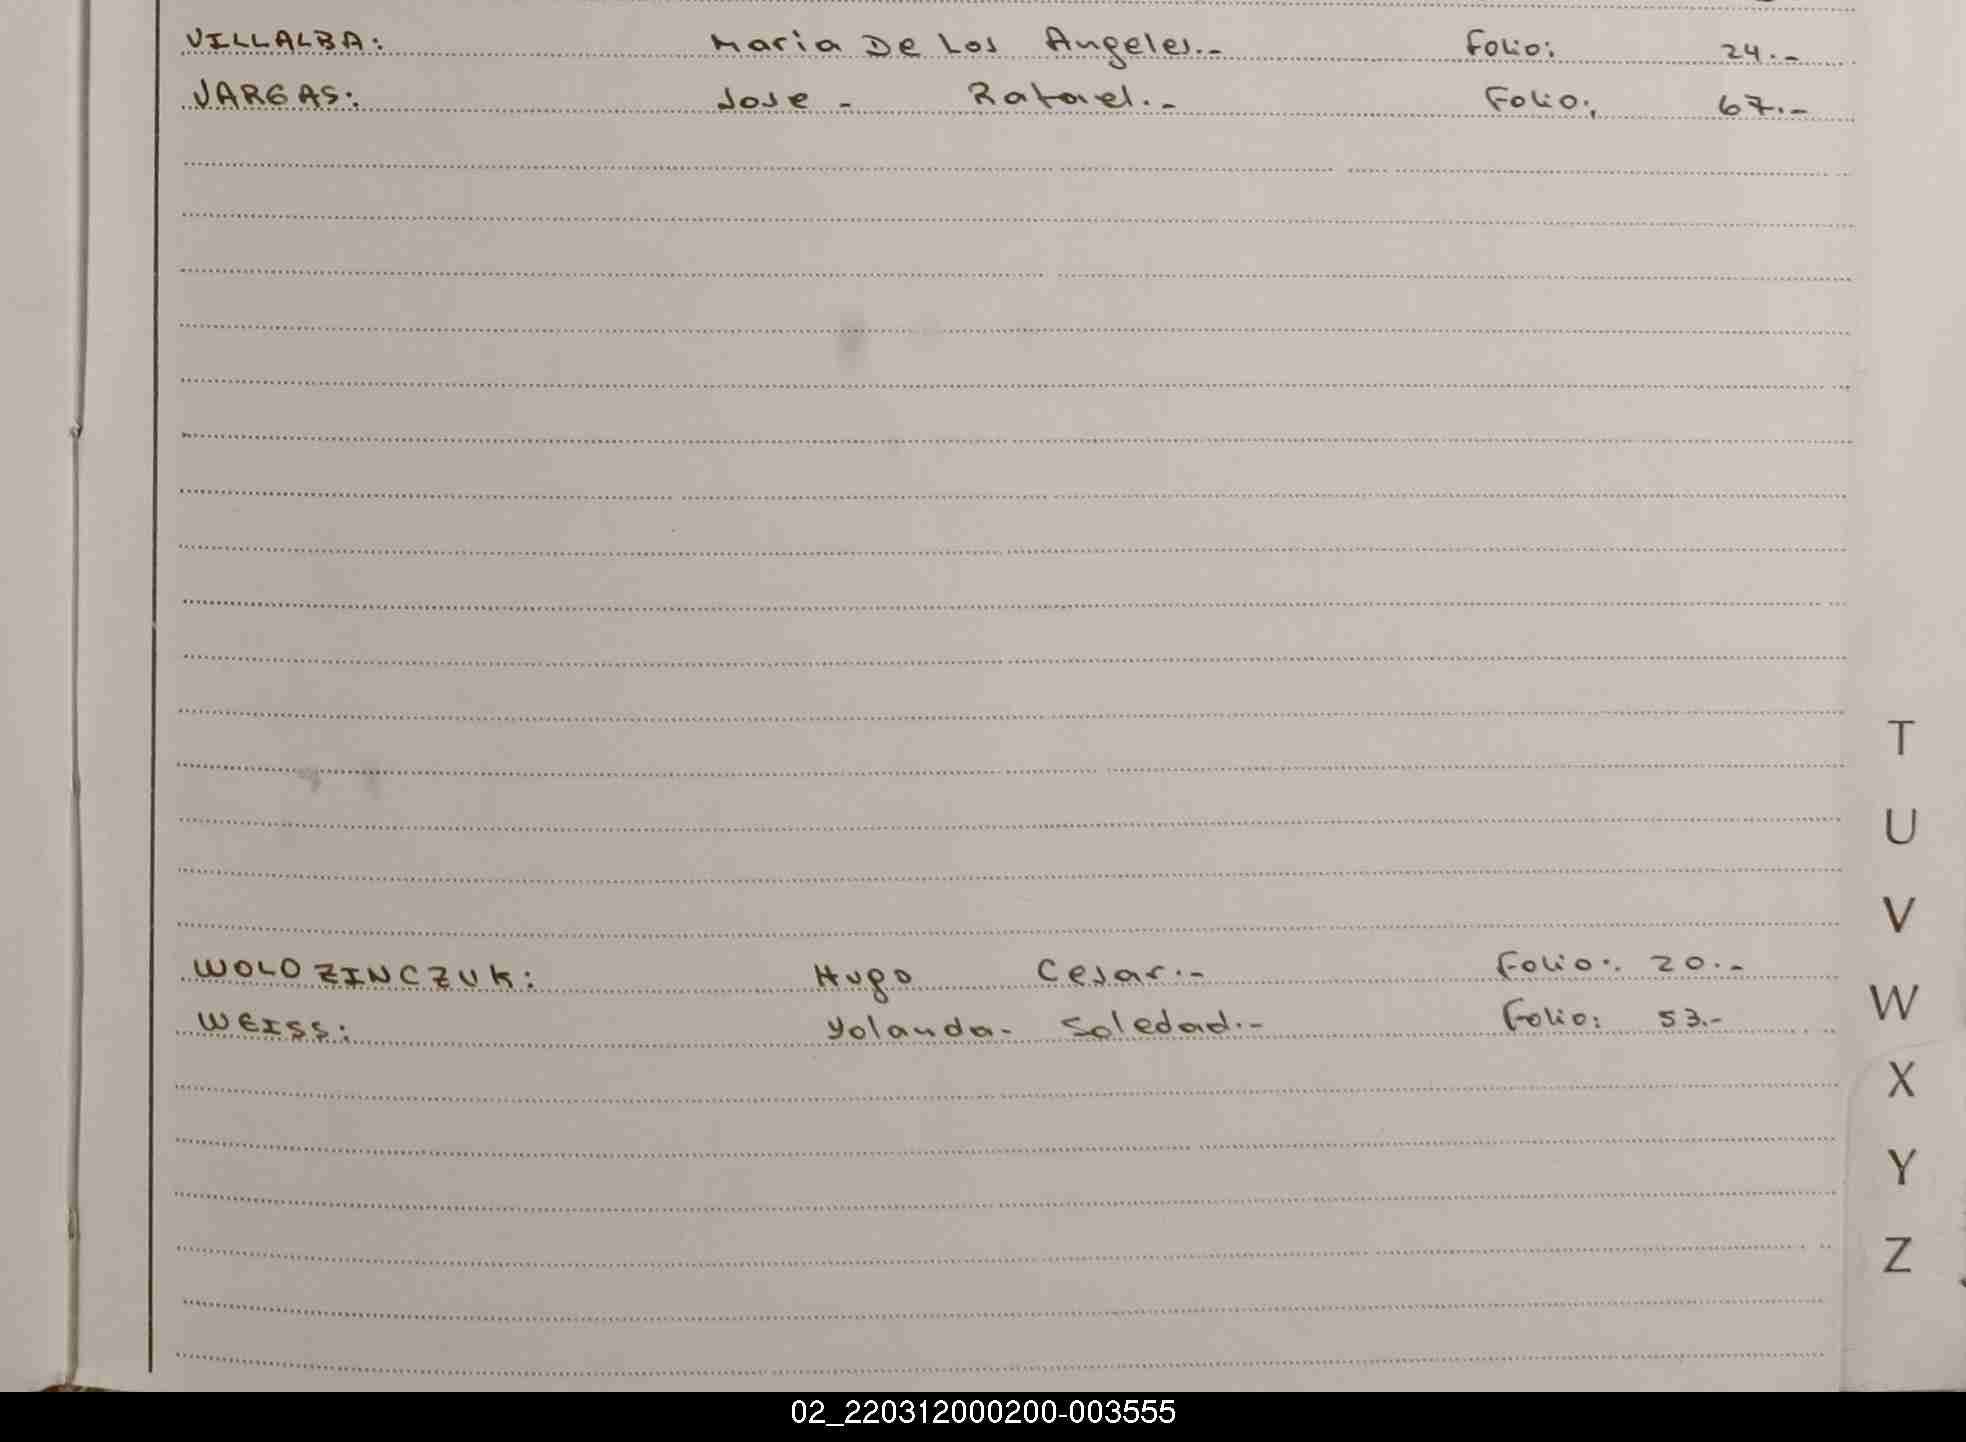 VILLALBA: Maria De Los Angeles.- Folio: 24.-
VARGAS: Jose - Rafael.- Folio: 67.-
WOLOZINCZUK: Hugo Cesar.- Folio: 20.-
WEISS: Yolanda - Soledad.- Folio: 53.-
T
U
V
W
X
Y
Z
02_220312000200-003555